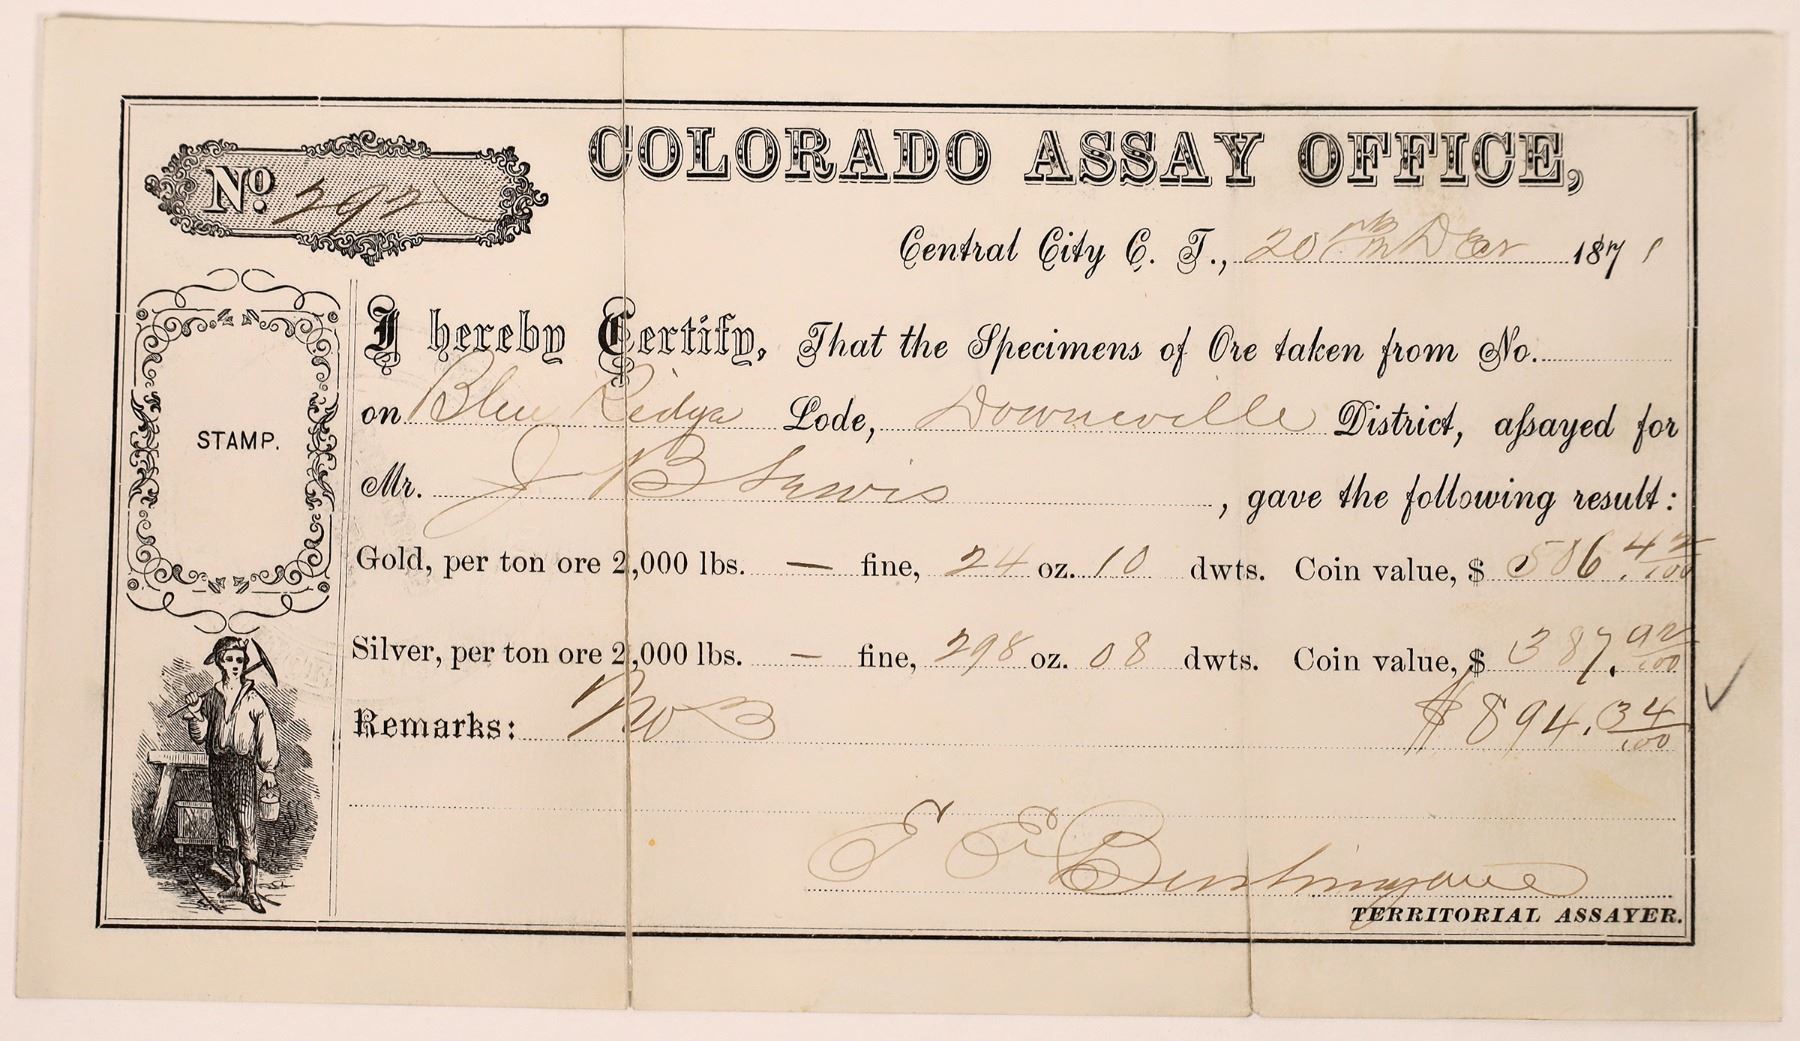 No. 292
COLORADO ASSAY OFFICE,
Central City C. T., 20th Decr 1871
I hereby Certify, That the Specimens of Ore taken from No.
on Blue Ridge Lode, Downieville District, aſsayed for
Mr. J B Lewis, gave the following result:
STAMP.
Gold, per ton ore 2,000 lbs. — fine, 24 oz. 10 dwts. Coin value, $ 506.42/100
Silver, per ton ore 2,000 lbs. — fine, 298 oz. 08 dwts. Coin value, $ 387.92/100
Remarks: No 3 $894.34/100
E E Burlingame
TERRITORIAL ASSAYER.